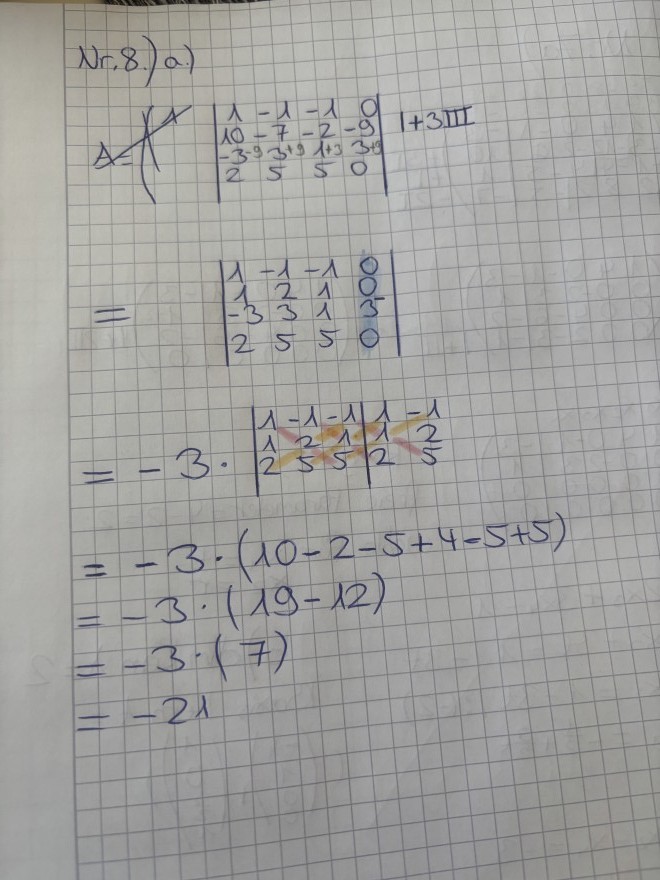 Nr. 8.) a.)
A = ( 1
| 1 -1 -1 0 |
| 10 -7 -2 -9 | | +3III
| -3 -9 3 +9 1 +3 3 +9 |
| 2 5 5 0 |
= | 1 -1 -1 0 |
| 1 2 1 0 |
| -3 3 1 3 |
| 2 5 5 0 |
= -3 · | 1 -1 -1 | 1 -1
| 1 2 1 | 1 2
| 2 5 5 | 2 5
= -3 · (10 - 2 - 5 + 4 - 5 + 5)
= -3 · (19 - 12)
= -3 · (7)
= -21